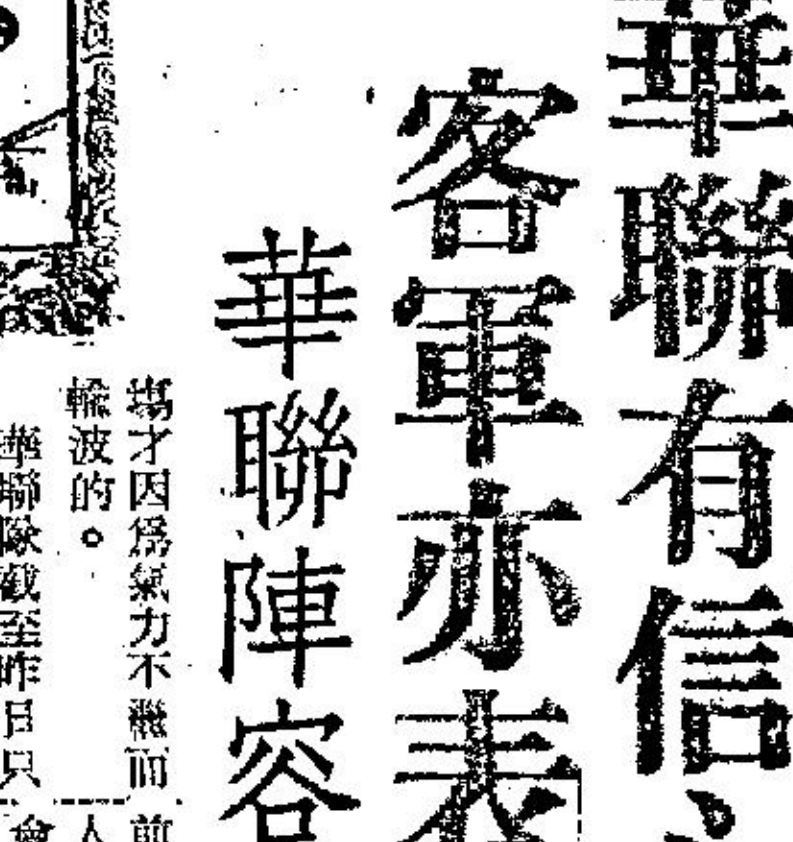 華聯有信心
客軍亦表
華聯陣容
塲才因爲氣力不繼而
輸波的。
華聯隊截至昨日只
前
人
會